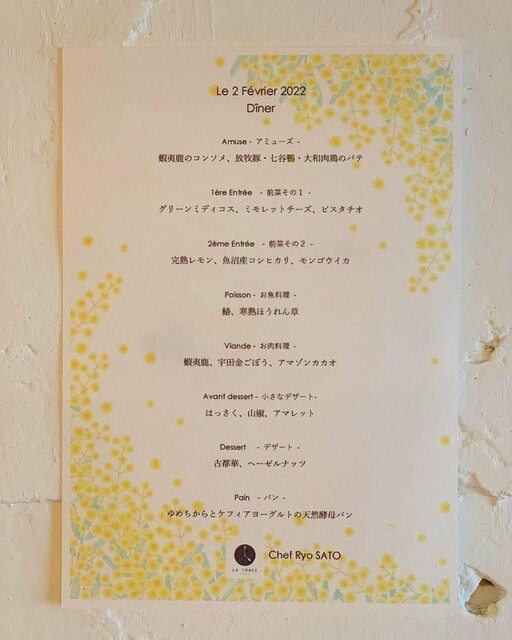 Le 2 Février 2022
Dîner
Amuse - アミューズ -
蝦夷鹿のコンソメ、放牧豚・七谷鴨・大和肉鶏のパテ
1ère Entrée - 前菜その1 -
グリーンミディコス、ミモレットチーズ、ピスタチオ
2ème Entrée - 前菜その2 -
完熟レモン、魚沼産コシヒカリ、モンゴウイカ
Poisson - お魚料理 -
鰆、寒熟ほうれん草
Viande - お肉料理 -
蝦夷鹿、宇田金ごぼう、アマゾンカカオ
Avant dessert - 小さなデザート-
はっさく、山椒、アマレット
Dessert - デザート -
古都華、ヘーゼルナッツ
Pain - パン -
ゆめちからとケフィアヨーグルトの天然酵母パン
LA TRACE
Chef Ryo SATO